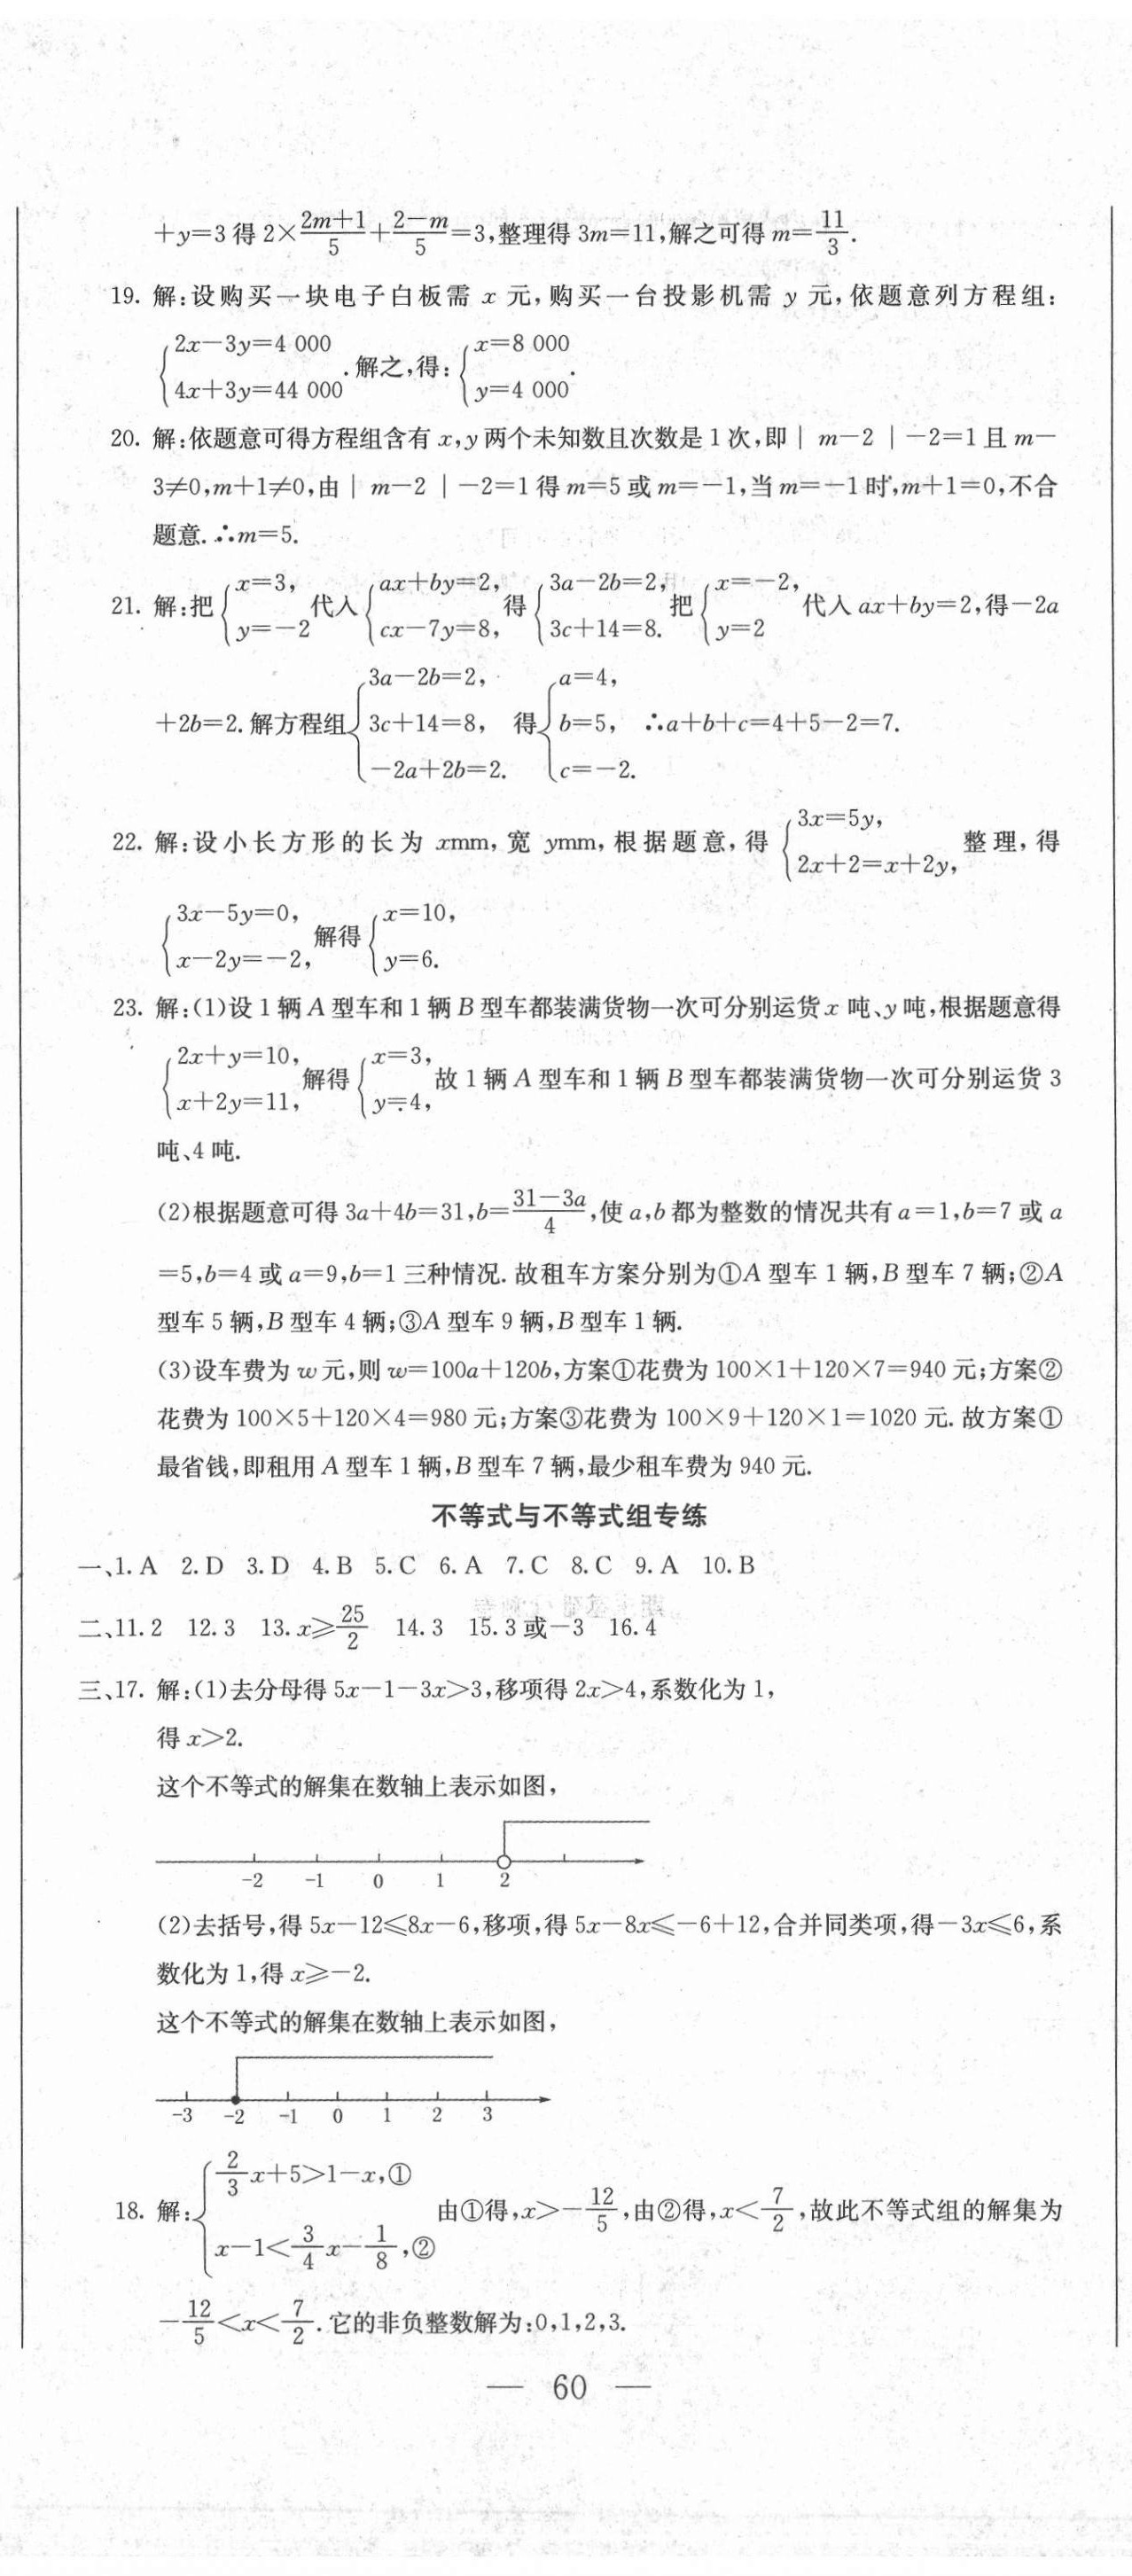 +y=3得2×\frac{2m+1}{5}+\frac{2-m}{5}=3,整理得3m=11,解之可得m=\frac{11}{3}.
19. 解:设购买一块电子白板需 x 元,购买一台投影机需 y 元,依题意列方程组:
{2x-3y=4 000
4x+3y=44 000 .解之,得:{x=8 000
y=4 000 .
20. 解:依题意可得方程组含有x,y两个未知数且次数是1次,即| m-2 |-2=1且m-
3≠0,m+1≠0,由| m-2 |-2=1得m=5或m=-1,当m=-1时,m+1=0,不合
题意.∴m=5.
21. 解:把{x=3, y=-2 代入{ax+by=2, cx-7y=8, 得{3a-2b=2, 3c+14=8. 把{x=-2, y=2 代入ax+by=2,得-2a
+2b=2.解方程组{3a-2b=2, 3c+14=8, -2a+2b=2. 得{a=4, b=5, c=-2. ∴a+b+c=4+5-2=7.
22. 解:设小长方形的长为 xmm,宽 ymm,根据题意,得{3x=5y, 2x+2=x+2y, 整理,得
{3x-5y=0, x-2y=-2, 解得{x=10, y=6.
23. 解:(1)设1辆A型车和1辆B型车都装满货物一次可分别运货x吨、y吨,根据题意得
{2x+y=10, x+2y=11, 解得{x=3, y=4, 故1辆A型车和1辆B型车都装满货物一次可分别运货3
吨、4吨.
(2)根据题意可得3a+4b=31,b=\frac{31-3a}{4},使a,b都为整数的情况共有a=1,b=7或a
=5,b=4或a=9,b=1三种情况.故租车方案分别为①A型车1辆,B型车7辆;②A
型车5辆,B型车4辆;③A型车9辆,B型车1辆.
(3)设车费为w元,则w=100a+120b,方案①花费为100×1+120×7=940元;方案②
花费为100×5+120×4=980元;方案③花费为100×9+120×1=1020元.故方案①
最省钱,即租用A型车1辆,B型车7辆,最少租车费为940元.
不等式与不等式组专练
一、1. A 2. D 3. D 4. B 5. C 6. A 7. C 8. C 9. A 10. B
二、11. 2 12. 3 13. x≥\frac{25}{2} 14. 3 15. 3或-3 16. 4
三、17. 解:(1)去分母得5x-1-3x>3,移项得2x>4,系数化为1,
得x>2.
这个不等式的解集在数轴上表示如图,
-2 -1 0 1 2
(2)去括号,得5x-12≤8x-6,移项,得5x-8x≤-6+12,合并同类项,得-3x≤6,系
数化为1,得x≥-2.
这个不等式的解集在数轴上表示如图,
-3 -2 -1 0 1 2 3
18. 解:{\frac{2}{3}x+5>1-x,① x-1<\frac{3}{4}x-\frac{1}{8},② 由①得,x>-\frac{12}{5},由②得,x<\frac{7}{2},故此不等式组的解集为
-\frac{12}{5}<x<\frac{7}{2}.它的非负整数解为:0,1,2,3.
— 60 —